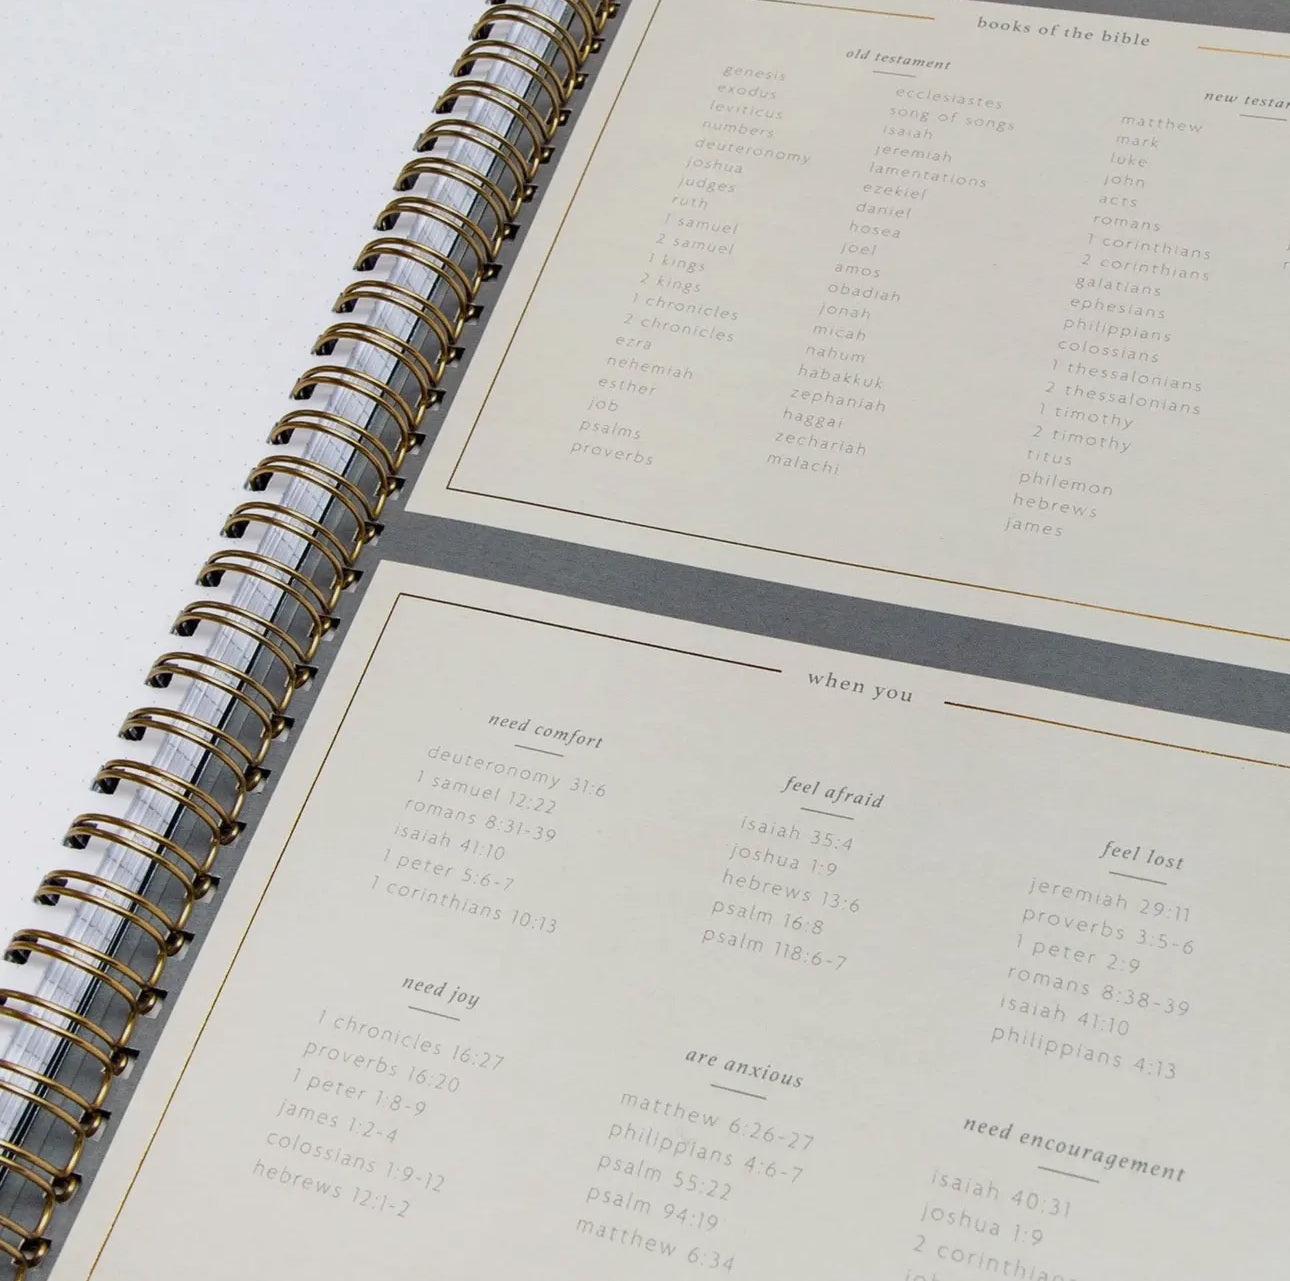 books of the bible
old testament
genesis
exodus
leviticus
numbers
deuteronomy
joshua
judges
ruth
1 samuel
2 samuel
1 kings
2 kings
1 chronicles
2 chronicles
ezra
nehemiah
esther
job
psalms
proverbs
ecclesiastes
song of songs
isaiah
jeremiah
lamentations
ezekiel
daniel
hosea
joel
amos
obadiah
jonah
micah
nahum
habakkuk
zephaniah
haggai
zechariah
malachi
new
matthew
mark
luke
john
acts
romans
1 corinthians
2 corinthians
galatians
ephesians
philippians
colossians
1 thessalonians
2 thessalonians
1 timothy
2 timothy
titus
philemon
hebrews
james
when you
need comfort
deuteronomy 31:6
1 samuel 12:22
romans 8:31-39
isaiah 41:10
1 peter 5:6-7
1 corinthians 10:13
feel afraid
isaiah 35:4
joshua 1:9
hebrews 13:6
psalm 16:8
psalm 118:6-7
feel lost
jeremiah 29:11
proverbs 3:5-6
1 peter 2:9
romans 8:38-39
isaiah 41:10
philippians 4:13
need joy
1 chronicles 16:27
proverbs 16:20
1 peter 1:8-9
james 1:2-4
colossians 1:9-12
hebrews 12:1-2
are anxious
matthew 6:26-27
philippians 4:6-7
psalm 55:22
psalm 94:19
matthew 6:34
need encouragement
isaiah 40:31
joshua 1:9
2